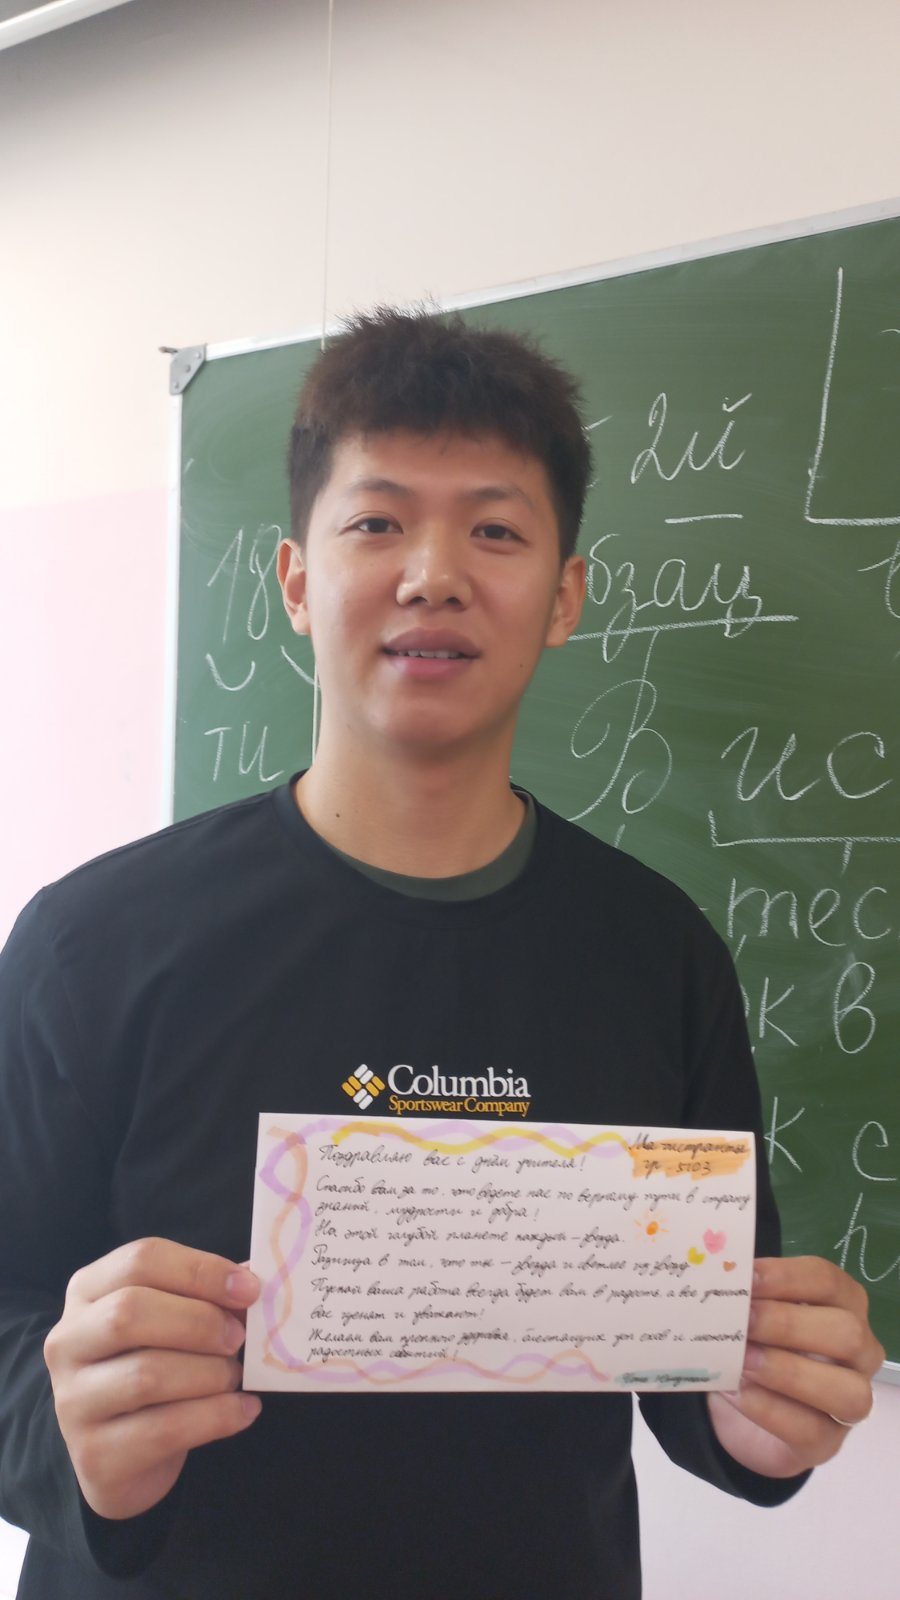 2й
18
бзац
ти
В ис
тес
к в
к с
Columbia
Sportswear Company
Магистранты
гр. 5103
Поздравляю вас с днём учителя!
Спасибо вам за то, что ведете нас по верному пути в страну
знаний, мудрости и добра!
На этой голубой планете каждый – звезда.
Разница в том, что ты – звезда и светлее из звёзд
Пускай ваша работа всегда будет вам в радость, а все ученики
вас ценят и уважают!
Желаем вам крепкого здоровья, блестящих успехов и множество
радостных событий!